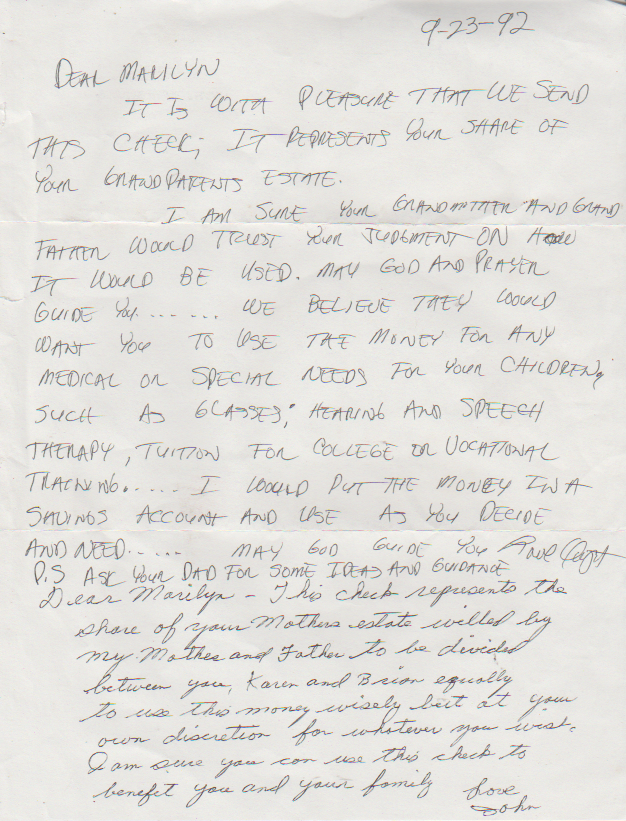 9-23-92
DEAR MARILYN
IT IS WITH PLEASURE THAT WE SEND
THIS CHECK; IT REPRESENTS YOUR SHARE OF
YOUR GRANDPARENTS ESTATE.
I AM SURE YOUR GRANDMOTHER AND GRAND
FATHER WOULD TRUST YOUR JUDGMENT ON HOW
IT WOULD BE USED. MAY GOD AND PRAYER
GUIDE YOU....... WE BELIEVE THEY WOULD
WANT YOU TO USE THE MONEY FOR ANY
MEDICAL OR SPECIAL NEEDS FOR YOUR CHILDREN,
SUCH AS GLASSES, HEARING AND SPEECH
THERAPY, TUITION FOR COLLEGE OR VOCATIONAL
TRAINING...... I WOULD PUT THE MONEY IN A
SAVINGS ACCOUNT AND USE AS YOU DECIDE
AND NEED...... MAY GOD GUIDE YOU
P.S ASK YOUR DAD FOR SOME IDEAS AND GUIDANCE
Dear Marilyn - This check represents the
share of your Mothers estate willed by
my Mother and Father to be divided
between you, Karen and Brian equally
to use this money wisely best at your
own discretion for whatever you wish.
I am sure you can use this check to
benefit you and your family Love
John